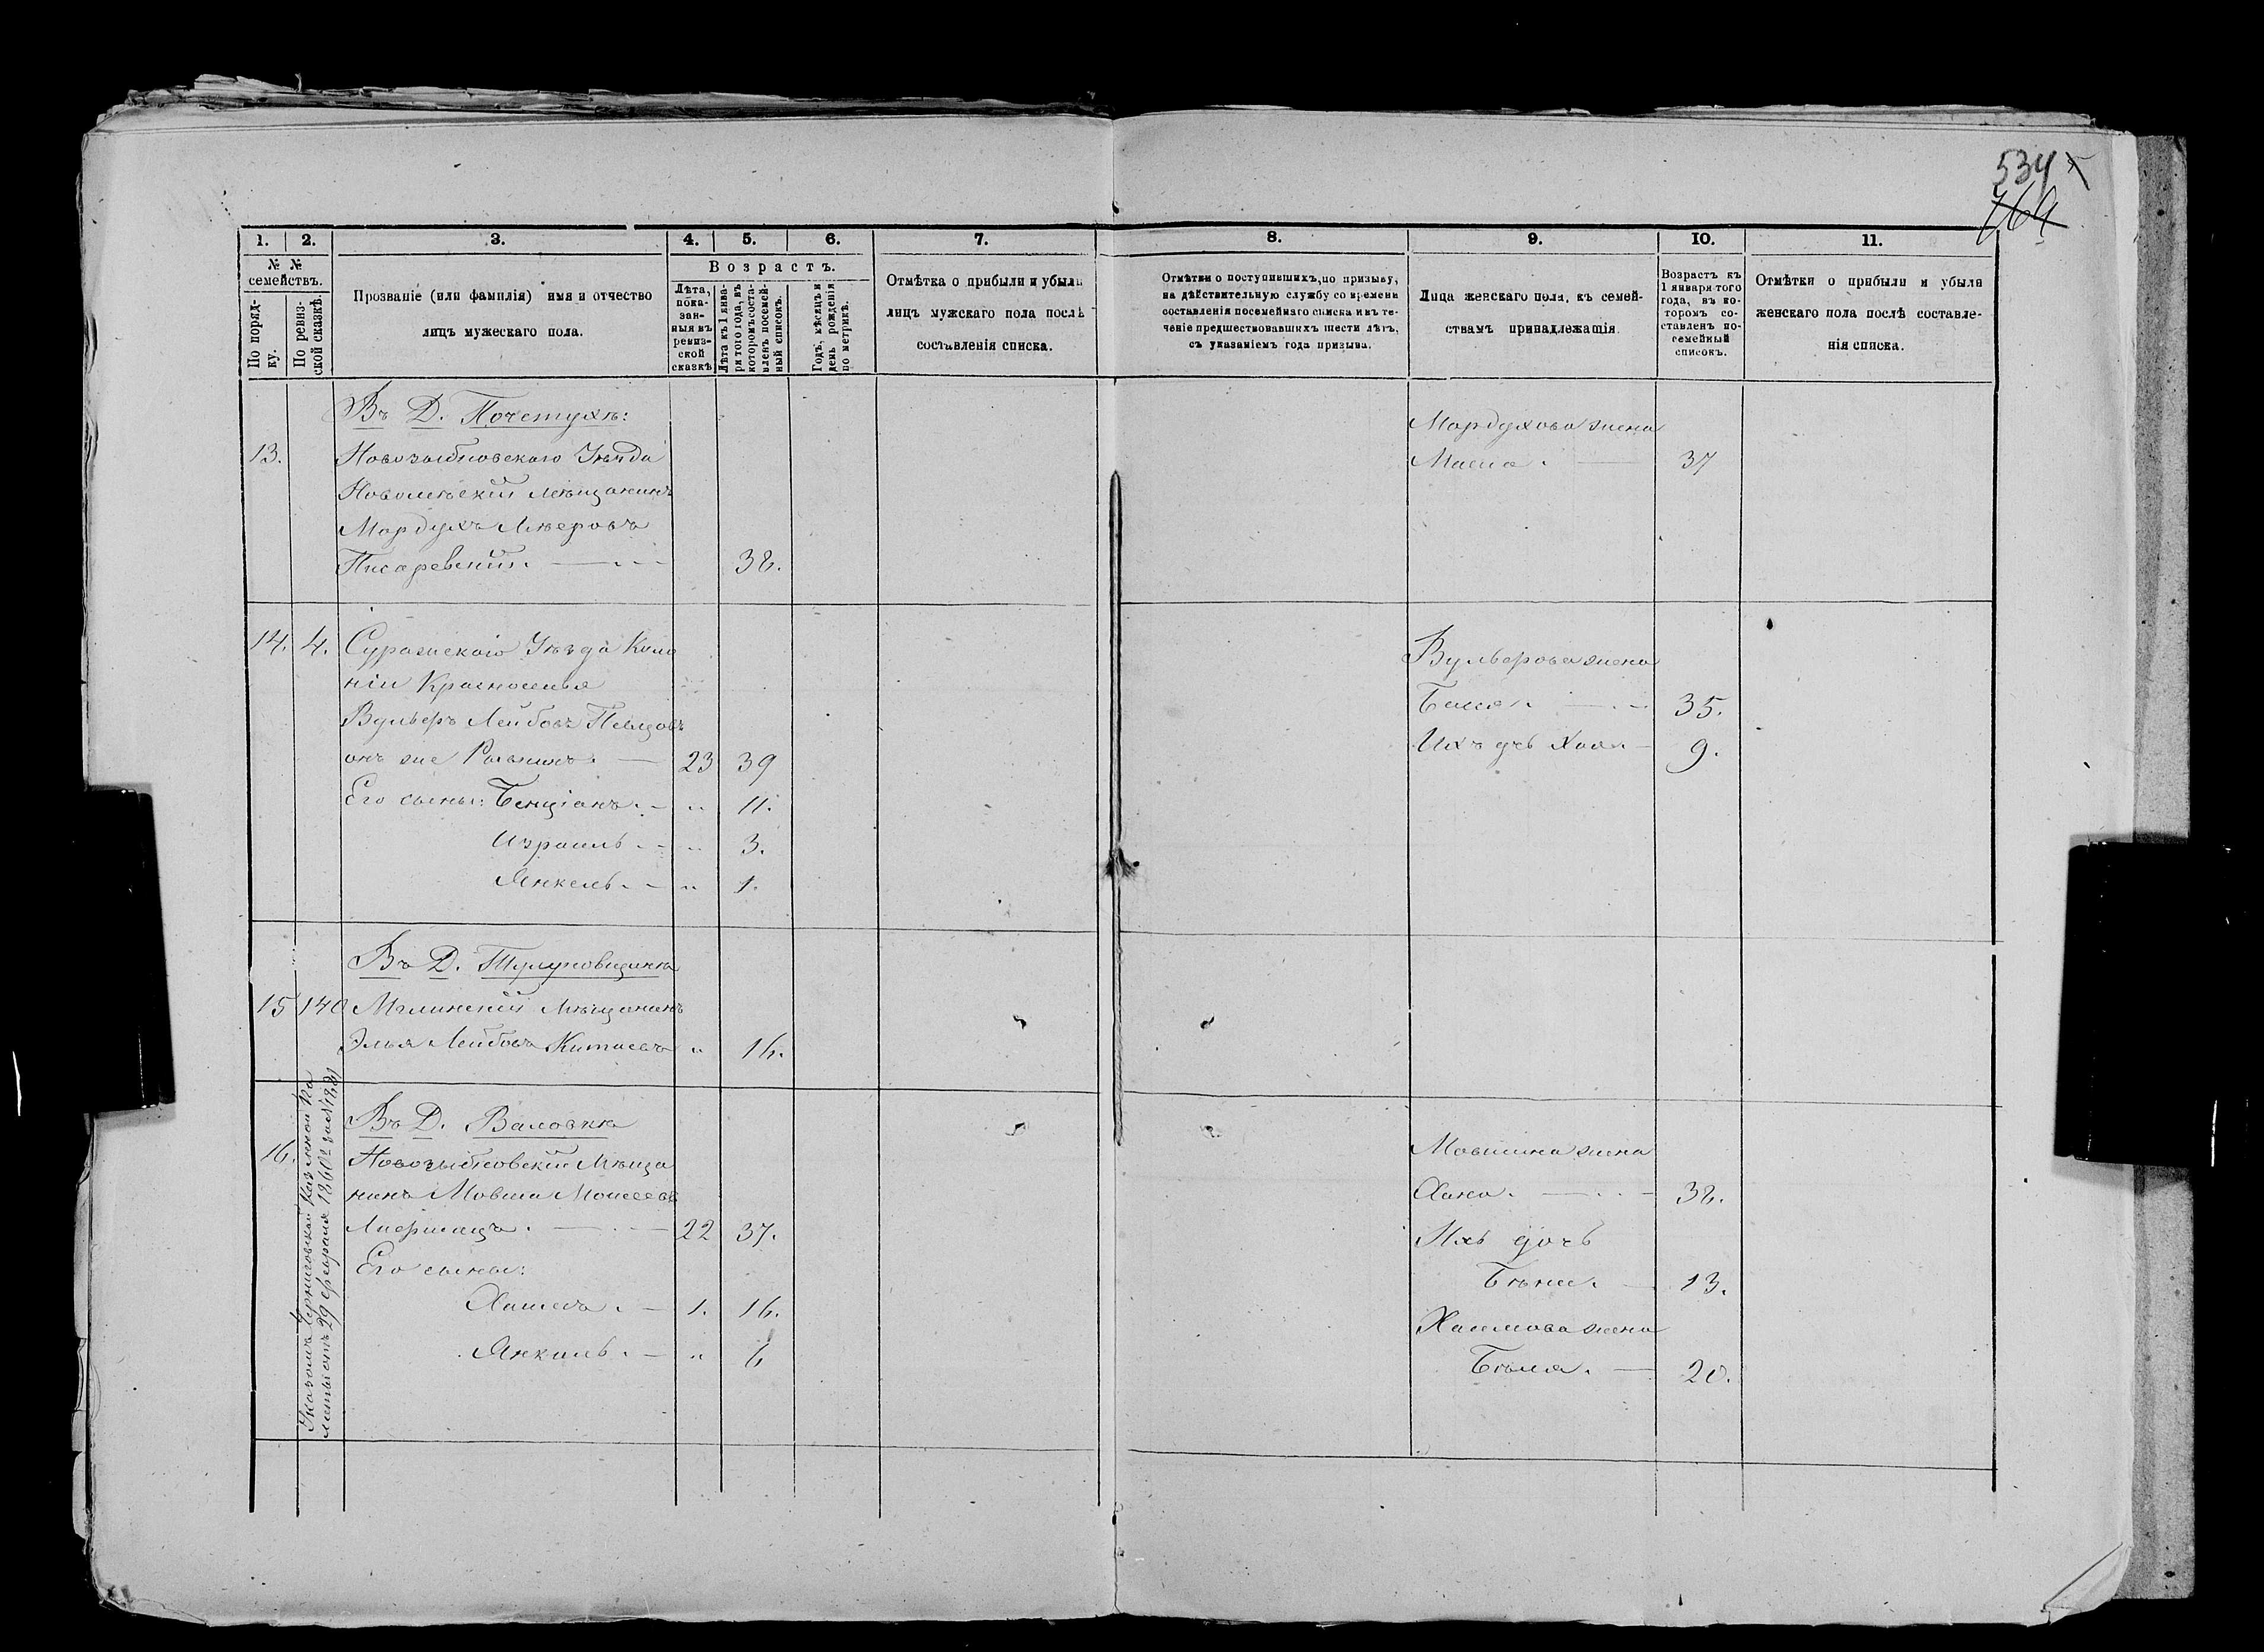 534
769
1. 2. 3. 4. 5. 6. 7. 8. 9. 10. 11.
№ № семействъ.
По поряд-
ку.
По ревиз-
ской сказкѣ.
Прозваніе (или фамилія) имя и отчество
лицъ мужескаго пола.
Возрастъ.
Лѣта,
пока-
зан-
ныя въ
ревиз-
ской
сказкѣ
Лѣта къ 1 янва-
ря того года, въ
которомъ соста-
вленъ посемей-
ный списокъ.
Годъ, мѣсяцъ и
день рожденія
по метрикѣ.
Отмѣтка о прибыли и убыли
лицъ мужскаго пола послѣ
составленія списка.
Отмѣтки о поступившихъ, по призыву,
на дѣйствительную службу со времени
составленія посемейнаго списка и въ те-
ченіе предшествовавшихъ шести лѣтъ,
съ указаніемъ года призыва.
Лица женскаго пола, къ семей-
ствамъ принадлежащія.
Возрастъ къ
1 января того
года, въ ко-
торомъ со-
ставленъ по-
семейный
списокъ.
Отмѣтки о прибыли и убыли
женскаго пола послѣ составле-
нія списка.
Въ Д. Почетухѣ:
13. Новозыбковскаго Уѣзда
Новомѣскій мѣщанинъ
Мордухъ Мѣеровъ
Писаревскій. 38.
Мордухова жена
37
14. 4. Суражскаго Уѣзда Коло
ніи Красноселья
Вульфъ Лейбовъ Певцовъ
онъ же 23 39
Его сыны: Бенціанъ. " 11.
Израиль. " 3.
Янкель. " 1.
Вульфова жена
Бася. 35.
Ихъ дчь Хая. 9.
Въ Д.
15 140 Мглинскій мѣщанинъ
Элья Лейбовъ Китаевъ " 16.
Указомъ Черниговской Казенной Па
латы отъ 29 февраля 1860 г. за №
Въ Д. Валовкѣ
16. Новозыбковскій Мѣща
нинъ Мовша Моисеевъ
22 37.
Его сыны:
Хаимъ. 1. 16.
Янкель. " 6
Мовшина жена
Хана. 38.
Ихъ дочь
13.
Хаимова жена
Бѣля. 20.